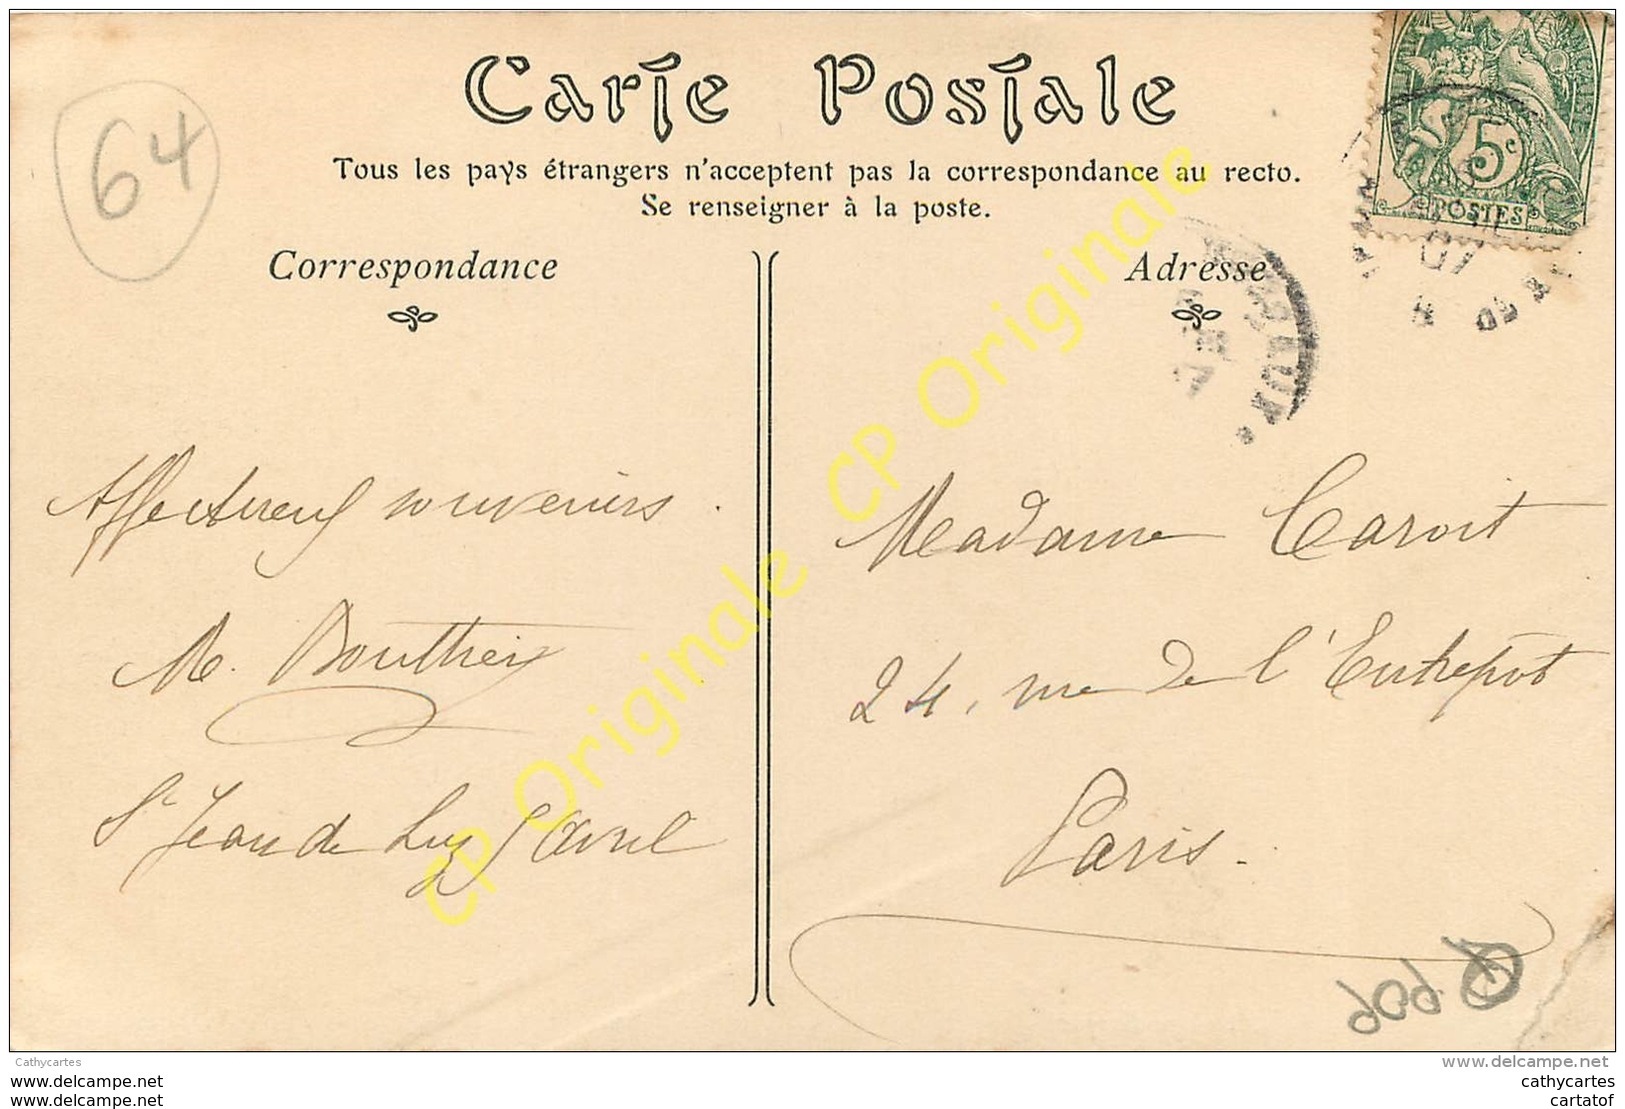 64
Carte Postale
Tous les pays étrangers n'acceptent pas la correspondance au recto.
Se renseigner à la poste.
5c
POSTES
Correspondance
Adresse
Affectueux souvenirs.
M.
St Jean de Luz 5 avril
Madame
24, rue de l'Entrepôt
Paris.
CP Originale CP Originale
Cathycartes
www.delcampe.com
www.delcampe.com
www.delcampe.com
cathycartes
cartatof